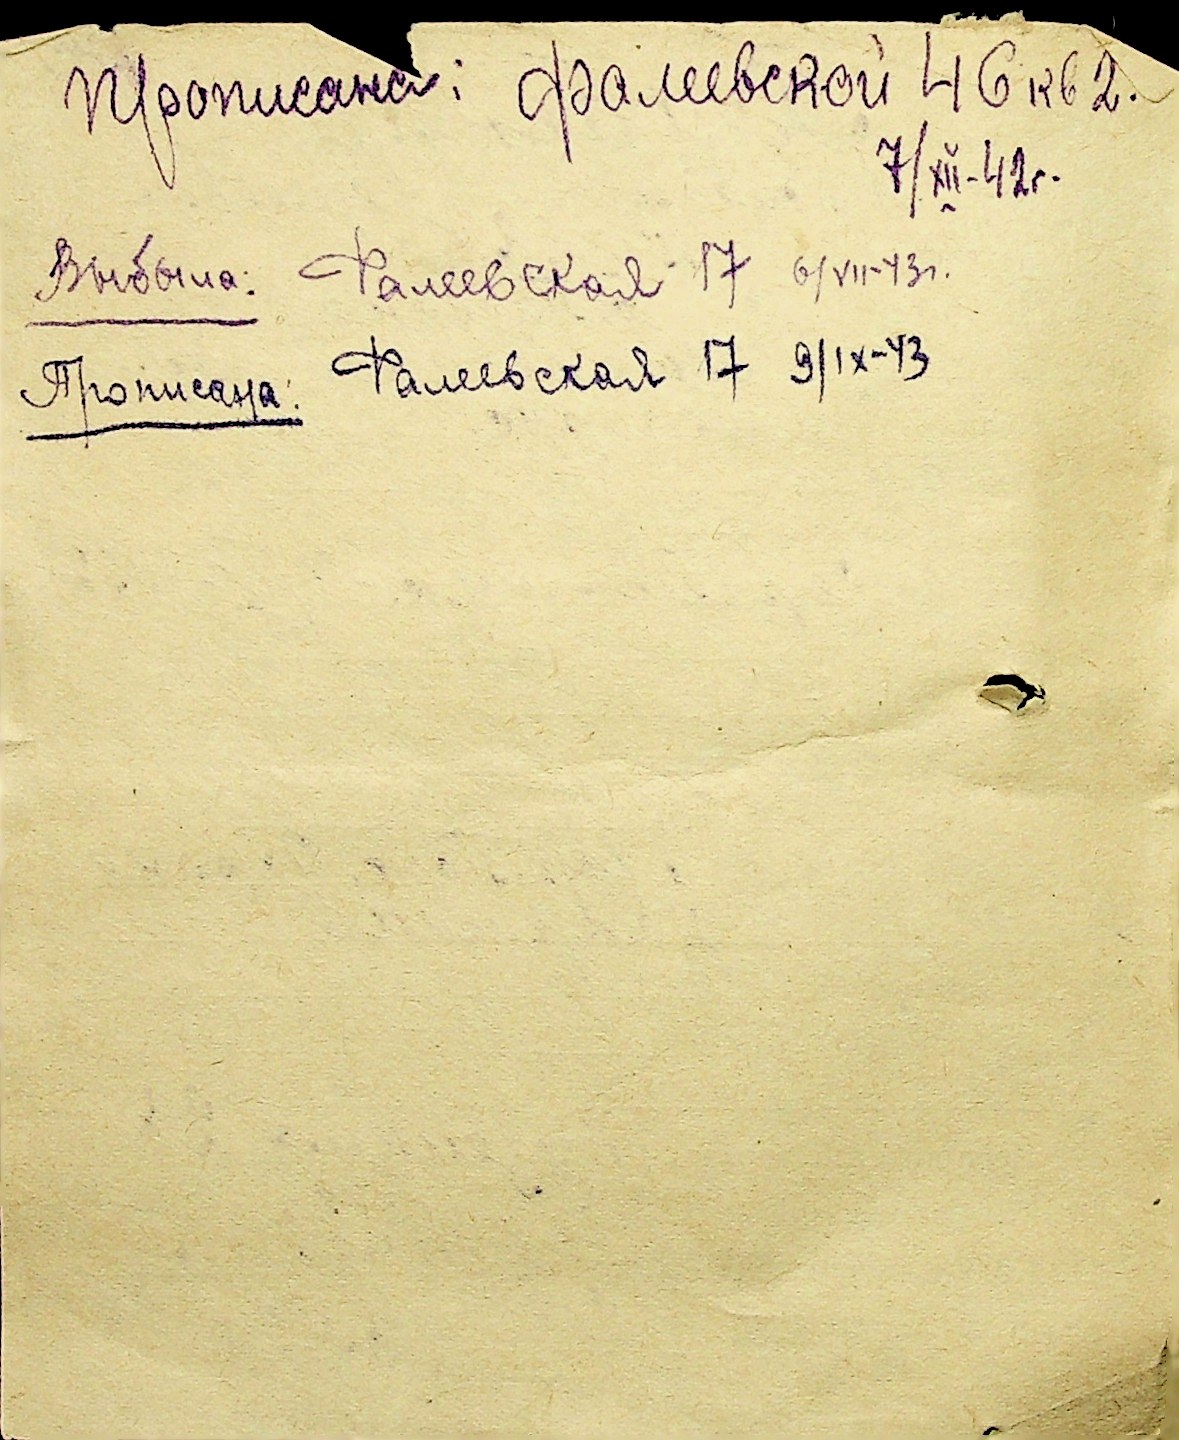 Прописана: Фалеевской 46 кв 2.
7/XII-42г.
Выбыла: Фалеевская 17 6/VII-43г.
Прописана: Фалеевская 17 9/IX-43